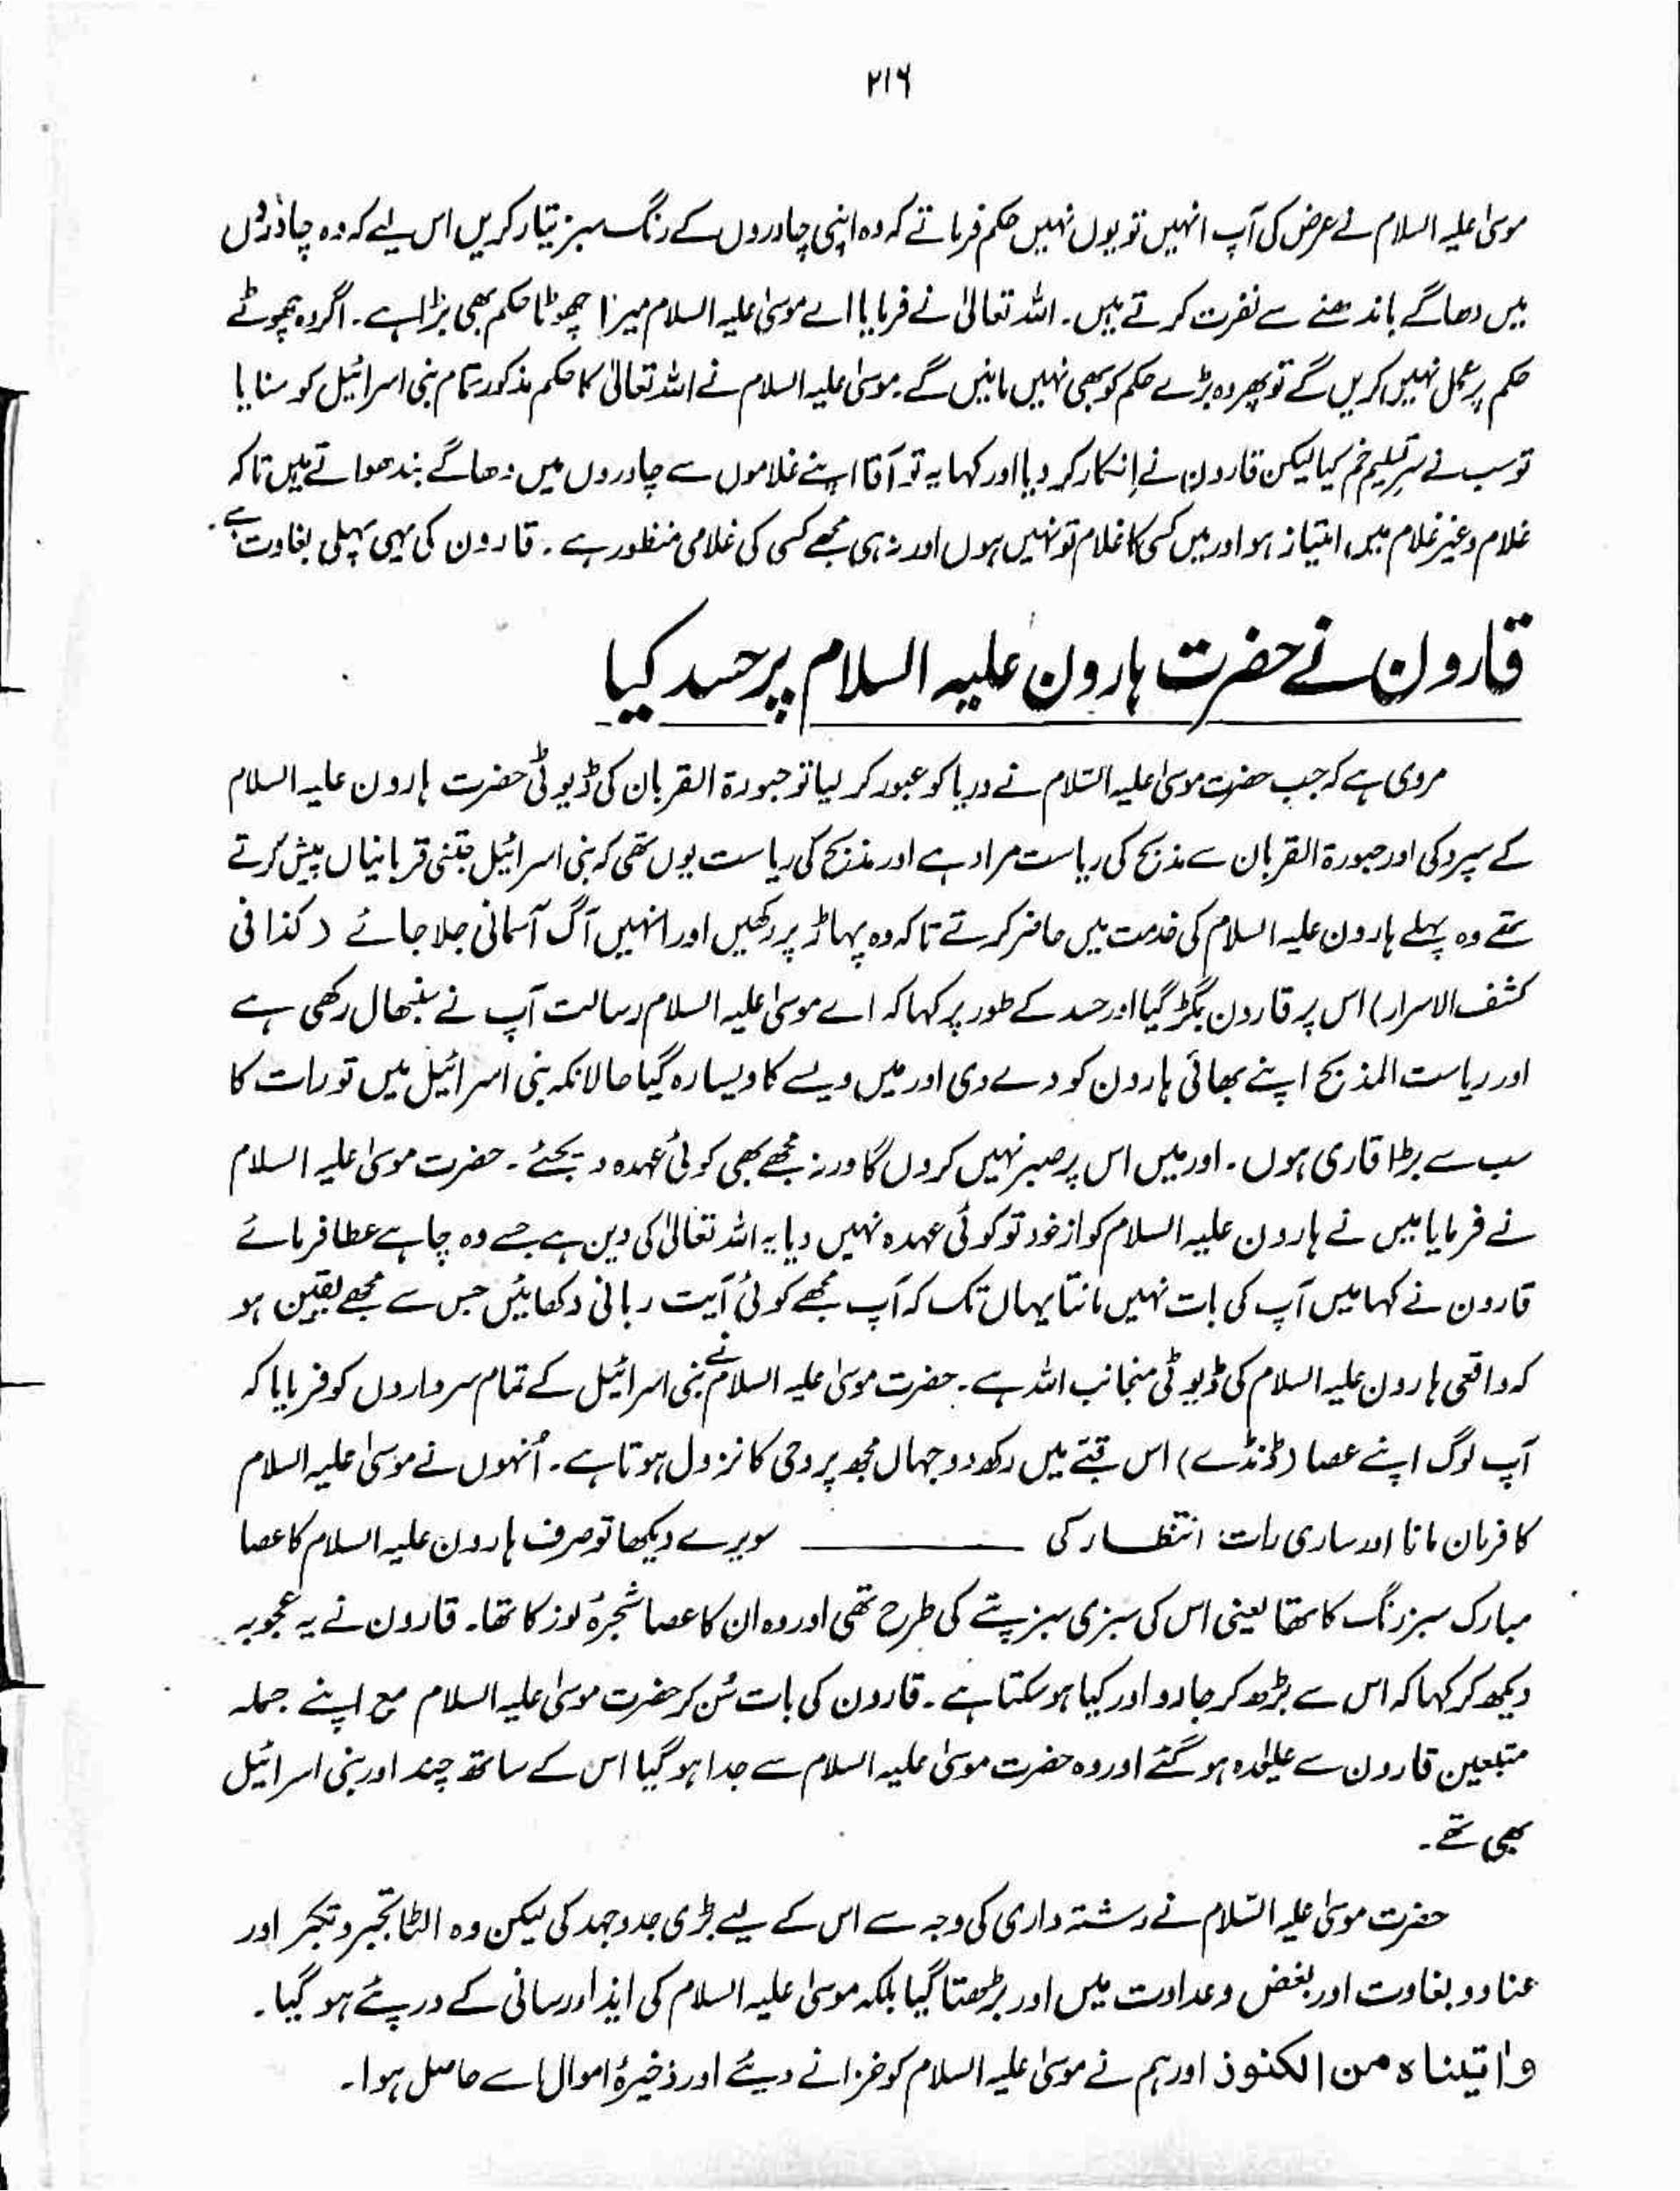 ۲۱۶
موسیٰ علیہ السلام نے عرض کی آپ انہیں تو یوں نہیں حکم فرماتے کہ وہ اپنی چادروں کے رنگ سبز تیار کریں اس لیے کہ وہ چادروں
میں دھاگے باندھنے سے نفرت کرتے ہیں۔ اللہ تعالیٰ نے فرمایا اے موسیٰ علیہ السلام میرا چھوٹا حکم بھی بڑا ہے۔ اگر وہ چھوٹے
حکم پر عمل نہیں کریں گے تو پھر وہ بڑے حکم کو بھی نہیں مانیں گے۔ موسیٰ علیہ السلام نے اللہ تعالیٰ کا حکم مذکور تمام بنی اسرائیل کو سنایا
تو سب نے سرِ تسلیم خم کیا لیکن قارون نے اِنکار کر دیا اور کہا یہ تو آقا اپنے غلاموں سے چادروں میں دھاگے بندھواتے ہیں تاکہ
غلام و غیر غلام میں امتیاز ہو اور میں کسی کا غلام تو نہیں ہوں اور نہ ہی مجھے کسی کی غلامی منظور ہے۔ قارون کی یہی پہلی بغاوت ہے۔
قارون نے حضرت ہارون علیہ السلام پر حسد کیا
مروی ہے کہ جب حضرت موسیٰ علیہ السّلام نے دریا کو عبور کر لیا تو حبورۃ القربان کی ڈیوٹی حضرت ہارون علیہ السلام
کے سپرد کی اور حبورۃ القربان سے مذبح کی ریاست مراد ہے اور مذبح کی ریاست یوں تھی کہ بنی اسرائیل جتنی قربانیاں پیش کرتے
تھے وہ پہلے ہارون علیہ السلام کی خدمت میں حاضر کرتے تاکہ وہ پہاڑ پر رکھیں اور انہیں آگ آسمانی جلا جائے (کذا فی
کشف الاسرار) اس پر قارون بگڑ گیا اور حسد کے طور پر کہا کہ اے موسیٰ علیہ السلام رسالت آپ نے سنبھال رکھی ہے
اور ریاست المذبح اپنے بھائی ہارون کو دے دی اور میں ویسے کا ویسا رہ گیا حالانکہ بنی اسرائیل میں تورات کا
سب سے بڑا قاری ہوں۔ اور میں اس پر صبر نہیں کروں گا ورنہ مجھے بھی کوئی عہدہ دیجئے۔ حضرت موسیٰ علیہ السلام
نے فرمایا میں نے ہارون علیہ السلام کو از خود تو کوئی عہدہ نہیں دیا یہ اللہ تعالیٰ کی دین ہے جسے وہ چاہے عطا فرمائے
قارون نے کہا میں آپ کی بات نہیں مانتا یہاں تک کہ آپ مجھے کوئی آیت ربانی دکھائیں جس سے مجھے یقین ہو
کہ واقعی ہارون علیہ السلام کی ڈیوٹی منجانب اللہ ہے۔ حضرت موسیٰ علیہ السلام نے بنی اسرائیل کے تمام سرداروں کو فرمایا کہ
آپ لوگ اپنے عصا (ڈنڈے) اس قبّے میں رکھ دو جہاں مجھ پر وحی کا نزول ہوتا ہے۔ اُنہوں نے موسیٰ علیہ السلام
کا فرمان مانا اور ساری رات انتظار کی ـــــــــــــ سویرے دیکھا تو صرف ہارون علیہ السلام کا عصا
مبارک سبز رنگ کا تھا یعنی اس کی سبزی سبز پتے کی طرح تھی اور وہ ان کا عصا شجرۂ لوز کا تھا۔ قارون نے یہ عجوبہ
دیکھ کر کہا کہ اس سے بڑھ کر جادو اور کیا ہو سکتا ہے۔ قارون کی بات سُن کر حضرت موسیٰ علیہ السلام مع اپنے جملہ
متبعین قارون سے علیٰحدہ ہو گئے اور وہ حضرت موسیٰ علیہ السلام سے جدا ہو گیا اس کے ساتھ چند اور بنی اسرائیل
بھی تھے۔
حضرت موسیٰ علیہ السّلام نے رشتہ داری کی وجہ سے اس کے لیے بڑی جدوجہد کی لیکن وہ الٹا تجبر و تکبر اور
عناد و بغاوت اور بغض و عداوت میں اور بڑھتا گیا بلکہ موسیٰ علیہ السلام کی ایذا رسانی کے درپئے ہو گیا۔
واٰتیناہ من الکنوز اور ہم نے موسیٰ علیہ السلام کو خزانے دیئے اور ذخیرۂ اموال اسے حاصل ہوا۔